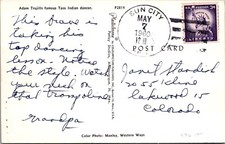 Adam Trujillo famous Taos Indian dancer.
P2814
This brave is
taking his
top dancing
lesson. Notice
the style. Watch
your neck on
that trampoline
Grandpa
SUN CITY
MAY
7
1960
POST CARD
Janet Standish
Lakewood 15
Colorado
Color Photo: Manley, Western Ways